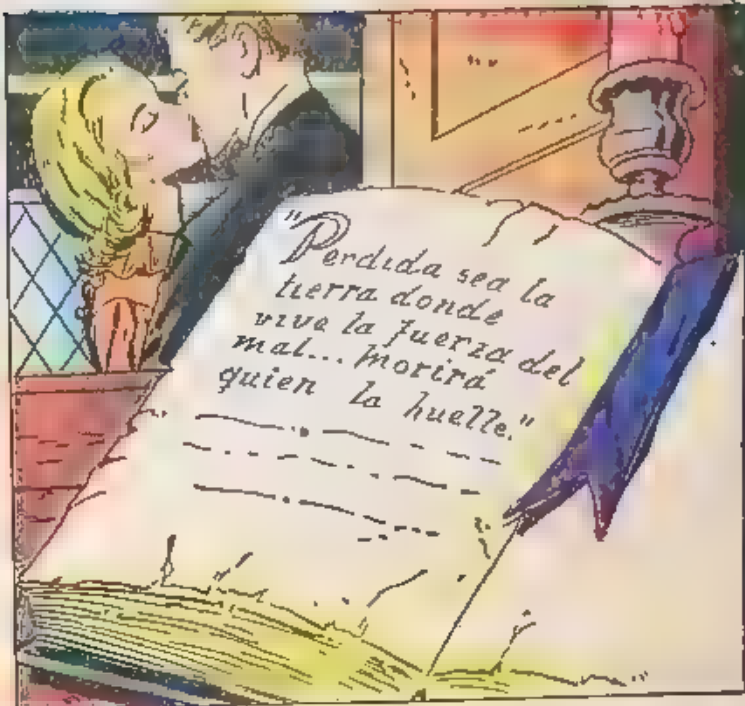 "Perdida sea la
tierra donde
vive la fuerza del
mal... morirá
quien la huelle."